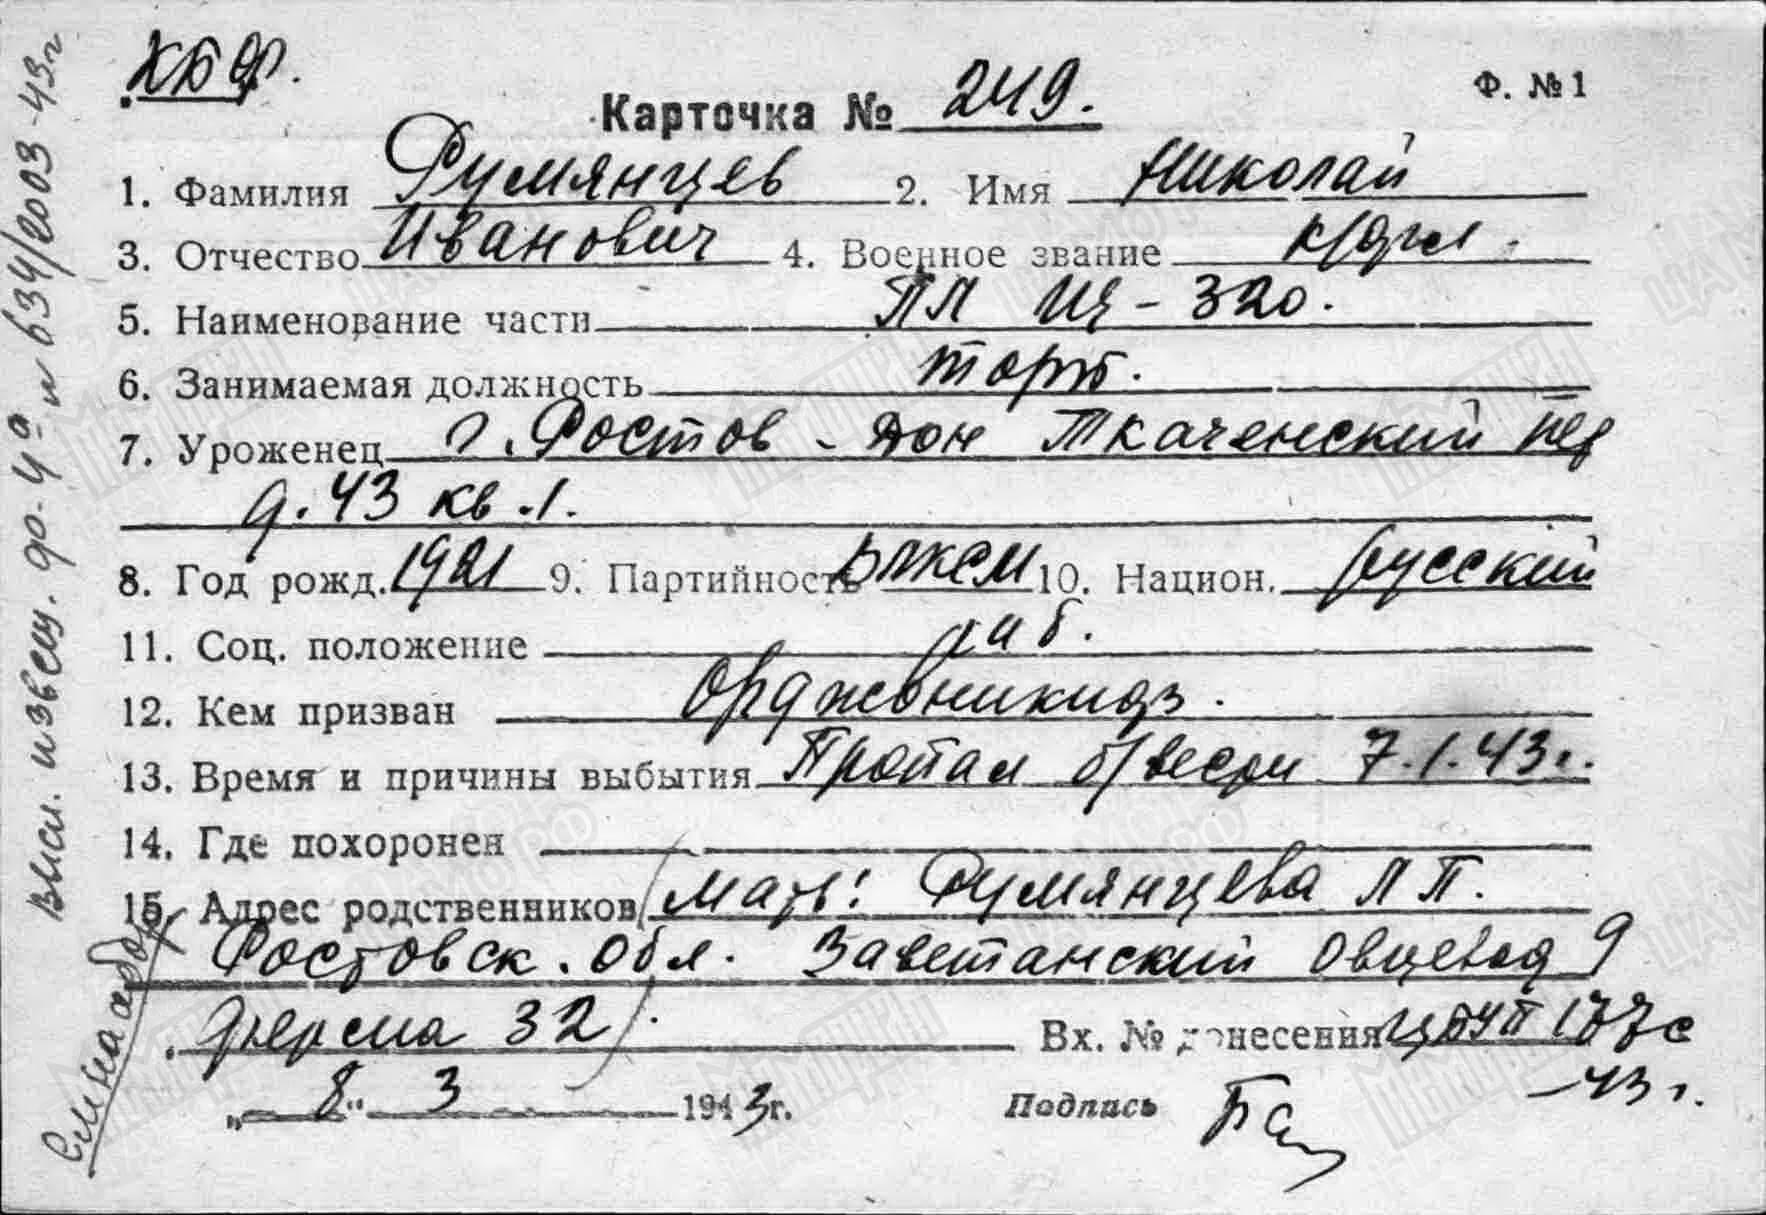 КБФ.
Ф. №1
Карточка № 249.
1. Фамилия Румянцев 2. Имя Николай
3. Отчество Иванович 4. Военное звание к/фл.
5. Наименование части ПЛ Щ-320.
6. Занимаемая должность торп.
7. Уроженец г. Ростов - Дон Ткаченский пер
д. 43 кв. 1.
8. Год рожд. 1921 9. Партийность ВЛКСМ 10. Национ. русский
11. Соц. положение раб.
12. Кем призван Орджоникидз.
13. Время и причины выбытия Пропал б/вести 7.1.43г.
14. Где похоронен
15. Адрес родственников (мать: Румянцева Л П.
Ростовск. обл. Заветанский овцевод
ферма 32).
Вх. № донесения 177с
-43 г.
„8" 3 1943г.
Подпись
Выси. извещ. до-4º п 634/2003-43г